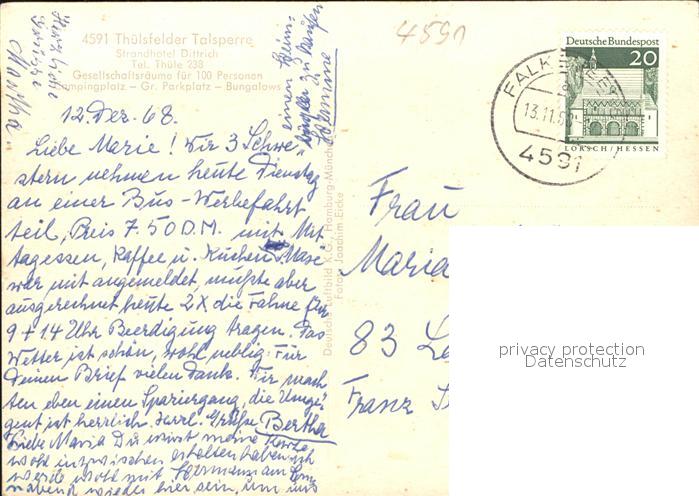 4591 Thülsfelder Talsperre
Strandhotel Dittrich
Tel. Thüle 238
Gesellschaftsräume für 100 Personen
Campingplatz – Gr. Parkplatz – Bungalows
4591
Deutsche Bundespost
20
LORSCH/HESSEN
13.11.68
4591
12. Dez. 68.
Liebe Marie! Wir 3 Schwe-
stern nehmen heute Dienstag
an einer Bus-Werbefahrt
teil, Preis 7.50 D.M. mit Mit-
tagessen, Kaffee u. Kuchen.
war mit angemeldet, mußte aber
ausgerechnet heute 2X die Fahne für
9 + 14 Uhr Beerdigung tragen. Das
Wetter ist schön, wohl neblig. Für
Deinen Brief vielen Dank. Wir mach-
ten eben einen Spaziergang, die Umge-
gend ist herrlich. Herzl. Grüße Bertha
Liebe Maria Du wirst meine Karte
wohl inzwischen erhalten haben ich
werde wohl mit Hermann am Sonn-
abend wieder hier sein, um uns
einen
zu kaufen
Hermine
Herzliche
Grüße
Martha
Deutsche Luftbild K.G., Hamburg-München
Foto: Joachim Eicke
Frau
Maria
83
Franz
privacy protection
Datenschutz